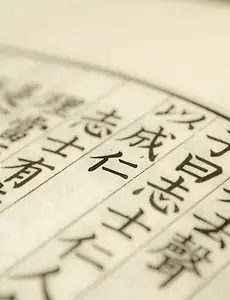 去聲
子曰志士仁人
以成仁
志士有
理當